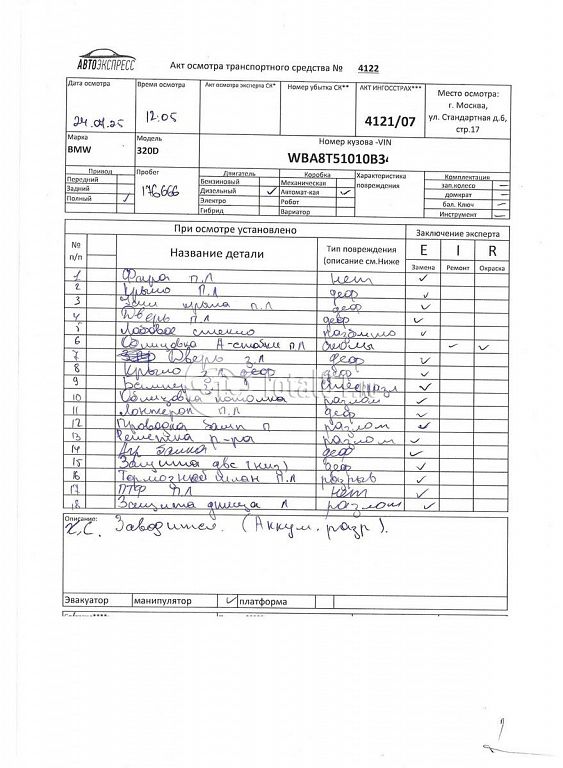 АВТОЭКСПРЕСС
Акт осмотра транспортного средства № 4122
Дата осмотра
Время осмотра
Акт осмотра эксперта СК*
Номер убытка СК**
АКТ ИНГОССТРАХ***
Место осмотра:
г. Москва,
ул. Стандартная д.6,
стр.17
12:05
4121/07
Марка
Модель
Номер кузова -VIN
BMW
320D
WBA8T51010B34
Привод
Пробег
Двигатель
Коробка
Характеристика
повреждения
Комплектация
Передний
Бензиновый
Механическая
зап.колесо ✓
Задний
176666
Дизельный ✓
Автомат-кая ✓
домкрат –
Полный ✓
Электро
Робот
бал. Ключ ✓
Гибрид
Вариатор
Инструмент –
При осмотре установлено
Заключение эксперта
№
п/п
Название детали
Тип повреждения
(описание см.Ниже
E I R
Замена Ремонт Окраска
1 Фара П.Л нет ✓
2 Крыло П.Л деф ✓
3 крыла п.л деф ✓
4 Дверь П.Л деф ✓
5 Лобовое стекло ✓
6 Облицовка А-стойки ПЛ сколы ✓ ✓
7 Дверь З.Л деф ✓
8 Крыло З.Л деф деф ✓
9 ✓
10 Облицовка потолка разлом ✓
11 Лонжерон П.Л деф ✓
12 Проводка бамп П разлом ✓
13 Решетка р-ра разлом ✓
14 деф ✓
15 Защита двс (низ) деф ✓
16 Тормозной шланг П.Л разрыв ✓
17 ПТФ ПЛ нет ✓
18 Защита днища Л разлом ✓
Описание:
Х.С. Заводится. (Аккум. разр).
Эвакуатор манипулятор ✓ платформа